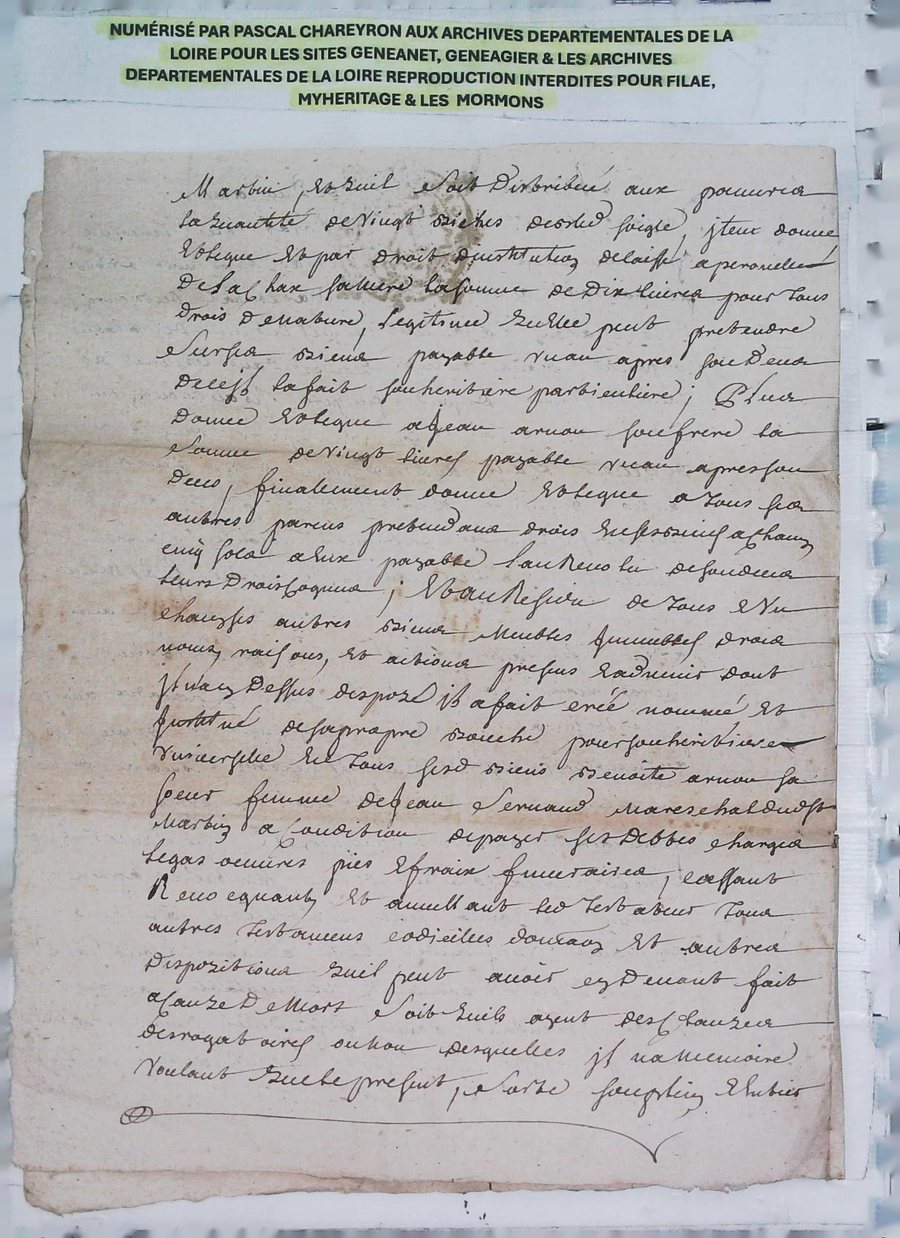 NUMÉRISÉ PAR PASCAL CHAREYRON AUX ARCHIVES DEPARTEMENTALES DE LA
LOIRE POUR LES SITES GENEANET, GENEAGIER & LES ARCHIVES
DEPARTEMENTALES DE LA LOIRE REPRODUCTION INTERDITES POUR FILAE,
MYHERITAGE & LES MORMONS
Martin, et quil soit distribué aux pauvres
la quantité de vingt bichets bled soigle, item donne
et legue et par droit dinstitution delaisse a peronelle
de la Chax sa mere la somme de dix livres pour tous
drois de nature, legitime quelle peut pretendre
sur ses biens payable un an apres son deces
la fait son heritiere particuliere; Plus
donne et legue a Jean arnou son frere la
somme de vingt livres payable un an apres son
deces, finalement donne et legue a tous ses
autres parens pretendans drois en ses biens a chacun
cinq sols a eux payable lan revolu de son deces
leurs drois cognus; et au Residu de tous et un
chacuns autres biens meubles immeubles drois
noms, raisons, et actions presens et advenir dont
il na cy dessus disposé il a fait créé nommé et
institué de sa propre bouche pour son heritiere
universelle en tous sesd biens benoite arnou sa
soeur femme de Jean Mareschal dud st
Martin a Condition de payer ses debtes charges
legas oeuvres pies et fraix funeraires, cassant
Revoquant, et annullant led testateur tous
autres testamens codicilles donnaons et autres
dispozitions quil peut avoir cy devant fait
a Cauze de Mort soit quils ayent des Clauzes
derogatoires ou non desquelles il na memoire
voulant que le present, sorte son plein et entier